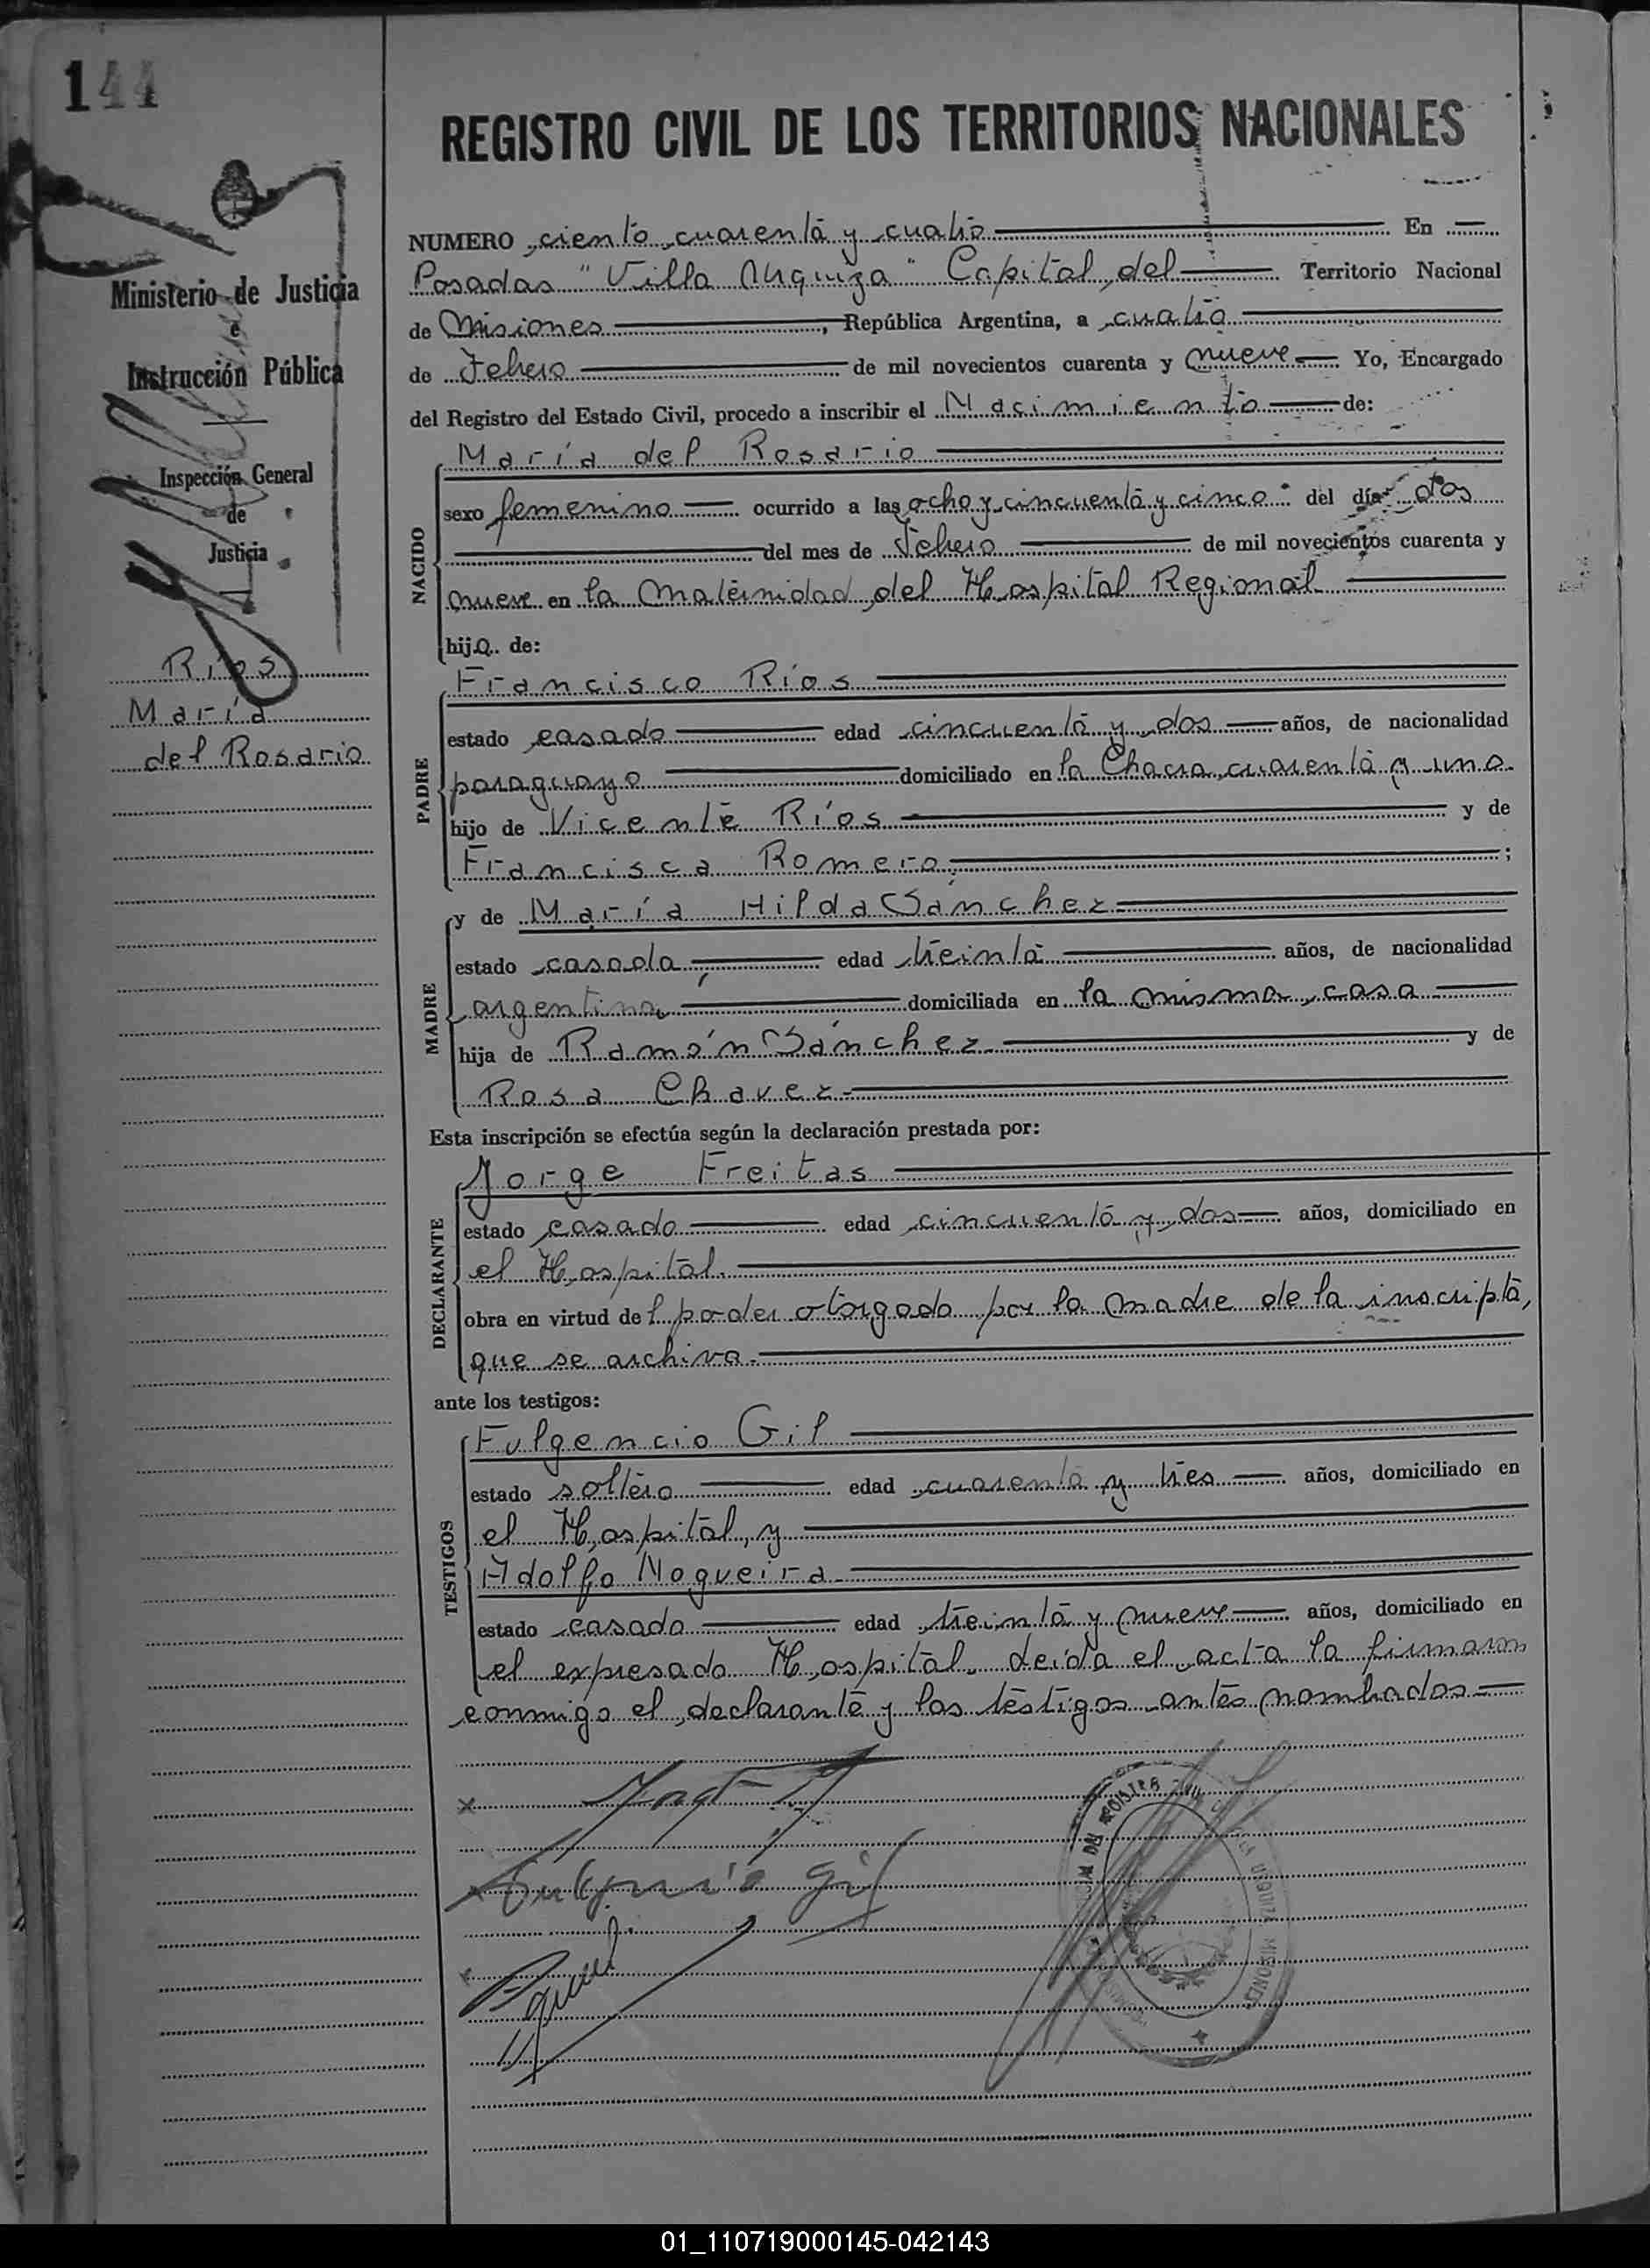 144
REGISTRO CIVIL DE LOS TERRITORIOS NACIONALES
Ministerio de Justicia
e
Instrucción Pública
Inspección General
de
Justicia
Ríos
María
del Rosario
NUMERO ciento cuarenta y cuatro En
Posadas "Villa Urquiza" Capital del Territorio Nacional
de Misiones, República Argentina, a cuatro
de Febrero de mil novecientos cuarenta y nueve Yo, Encargado
del Registro del Estado Civil, procedo a inscribir el Nacimiento de:
NACIDO
María del Rosario
sexo femenino ocurrido a las ocho y cincuenta y cinco del día dos
del mes de Febrero de mil novecientos cuarenta y
nueve en la Maternidad del Hospital Regional
hija de:
PADRE
Francisco Ríos
estado casado edad cincuenta y dos años, de nacionalidad
paraguayo domiciliado en la Chacra cuarenta y uno
hijo de Vicente Ríos y de
Francisca Romero ;
MADRE
y de María Hilda Sánchez
estado casada edad treinta años, de nacionalidad
argentina domiciliada en la misma casa
hija de Ramón Sánchez y de
Rosa Chavez
Esta inscripción se efectúa según la declaración prestada por:
DECLARANTE
Jorge Freitas
estado casado edad cincuenta y dos años, domiciliado en
el Hospital.
obra en virtud del poder otorgado por la madre de la inscripta,
que se archiva.
ante los testigos:
TESTIGOS
Fulgencio Gil
estado soltero edad cuarenta y tres años, domiciliado en
el Hospital, y
Adolfo Nogueira
estado casado edad treinta y nueve años, domiciliado en
el expresado Hospital. Leída el acta la firmaron
conmigo el declarante y los testigos antes nombrados
Fulgencio Gil
01_110719000145-042143